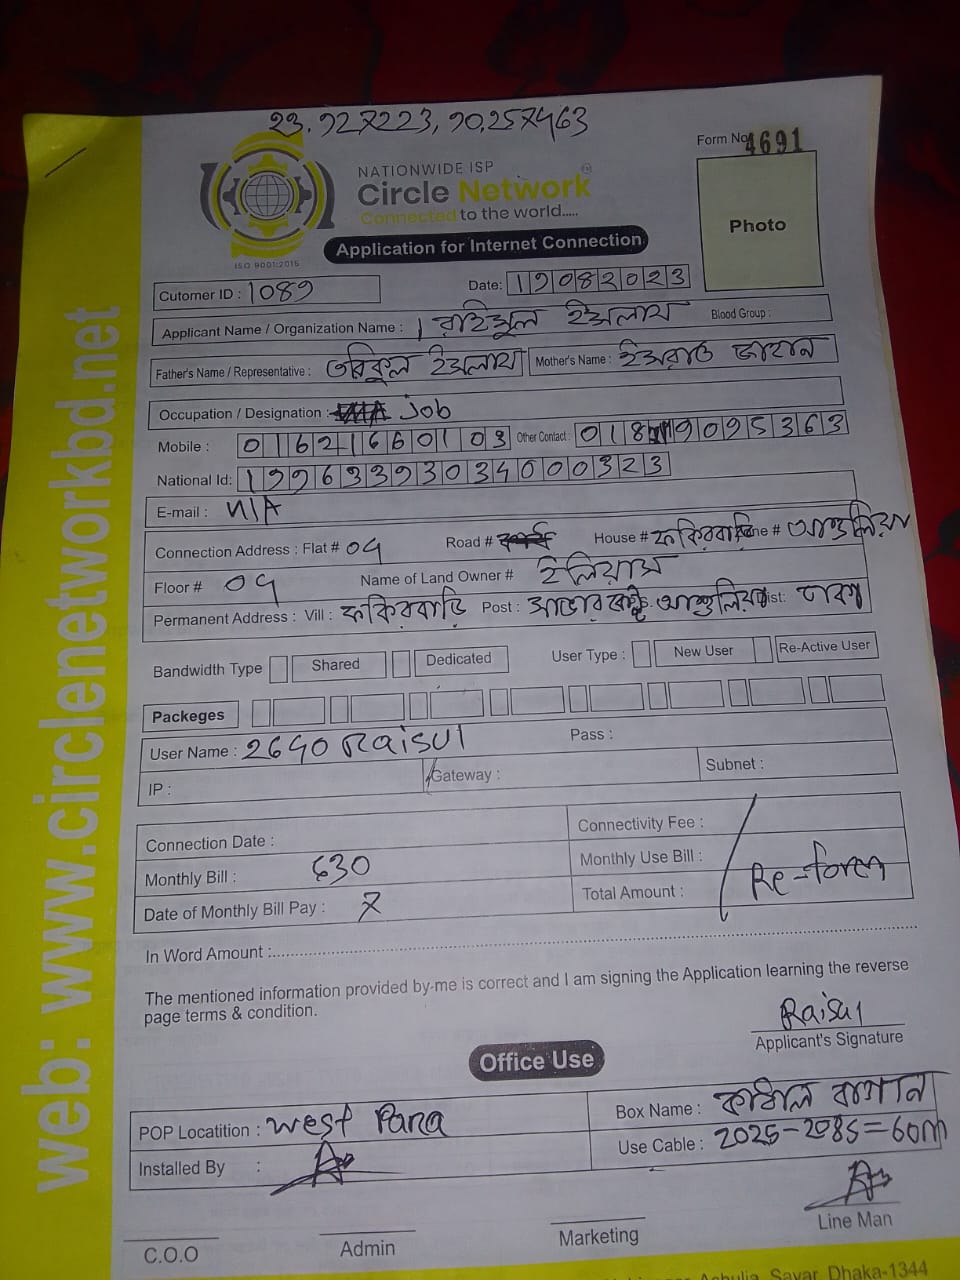 23.927223, 90.257463
Form No 4691
NATIONWIDE ISP
Circle Network
Connected to the world.....
ISO 9001:2015
Application for Internet Connection
Photo
Cutomer ID : 1089
Date: 19082023
Applicant Name / Organization Name : রাইসুল ইসলাম Blood Group :
Father's Name / Representative : তরিকুল ইসলাম Mother's Name : ইসরাত জাহান
Occupation / Designation : Job
Mobile : 01621660109 Other Contact : 018 9095363
National Id: 19963393034000323
E-mail : N/A
Connection Address : Flat # 04 Road # House # ফকিরবাড়ি আশুলিয়া
Floor # 04 Name of Land Owner # ইলিয়াস
Permanent Address : Vill : ফকিরবাড়ি Post : সাভার আশুলিয়া Dist: ঢাকা
Bandwidth Type Shared Dedicated User Type : New User Re-Active User
Packeges
User Name : 2690Raisul Pass :
IP : Gateway : Subnet :
Connection Date : Connectivity Fee :
Monthly Bill : 630 Monthly Use Bill : Re-form
Date of Monthly Bill Pay : 7 Total Amount :
In Word Amount :
The mentioned information provided by-me is correct and I am signing the Application learning the reverse
page terms & condition.
Raisul
Applicant's Signature
Office Use
POP Locatition : West Para Box Name : কাঠাল বাগান
Installed By : Use Cable : 2025-2085=60m
C.O.O Admin Marketing Line Man
Ashulia, Savar, Dhaka-1344
web: www.circlenetworkbd.net